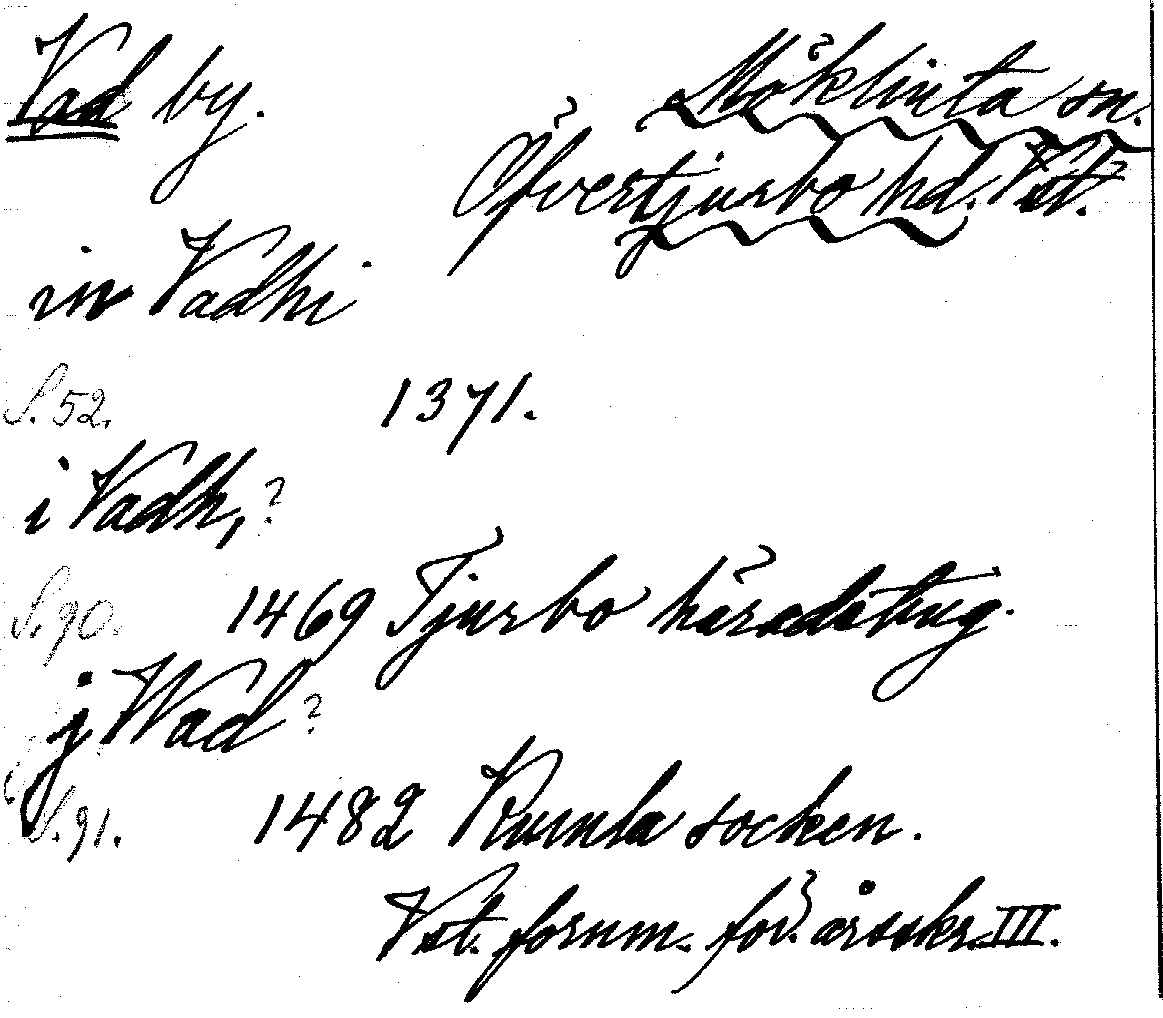 Vad by.
Möklinta sn.
Öfvertjurbo hd. Vst.
in Vadhi
S. 52. 1371.
i Vadh, ?
S. 90. 1469 Tjurbo häradsting.
j Wad ?
S. 91. 1482 Kumla socken.
Vst. fornm. för. årsskr. III.